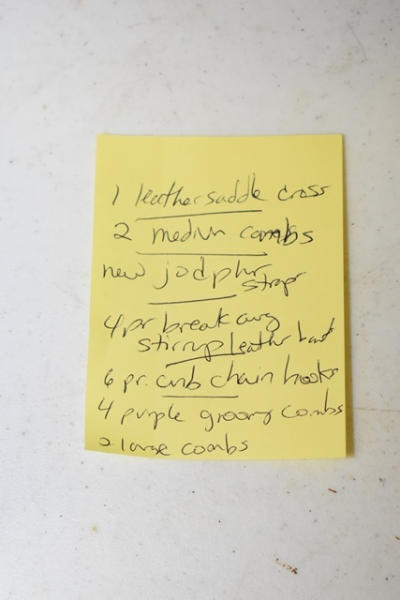 1 leather saddle cross
2 medium combs
new jodphr
straps
4 pr break away
stirrup leather
6 pr. curb chain hooks
4 purple groomy combs
2 large combs